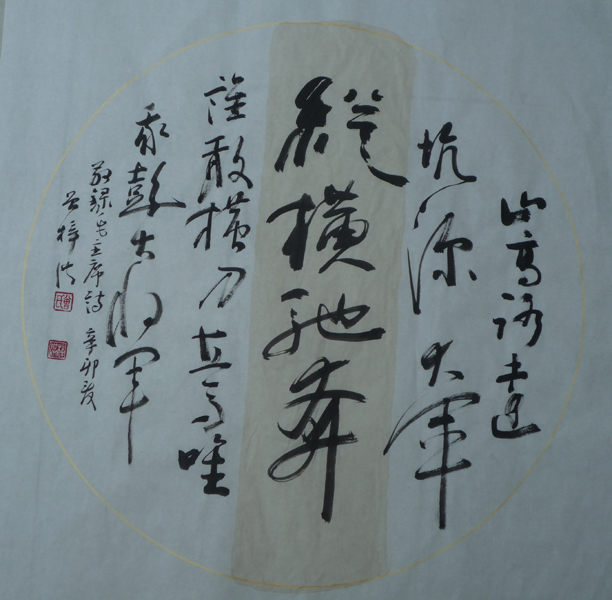 山高路遠
坑深大軍
縱橫馳奔
誰敢橫刀立馬唯
我彭大將軍
敬録毛主席詩 辛卯夏
梓浩